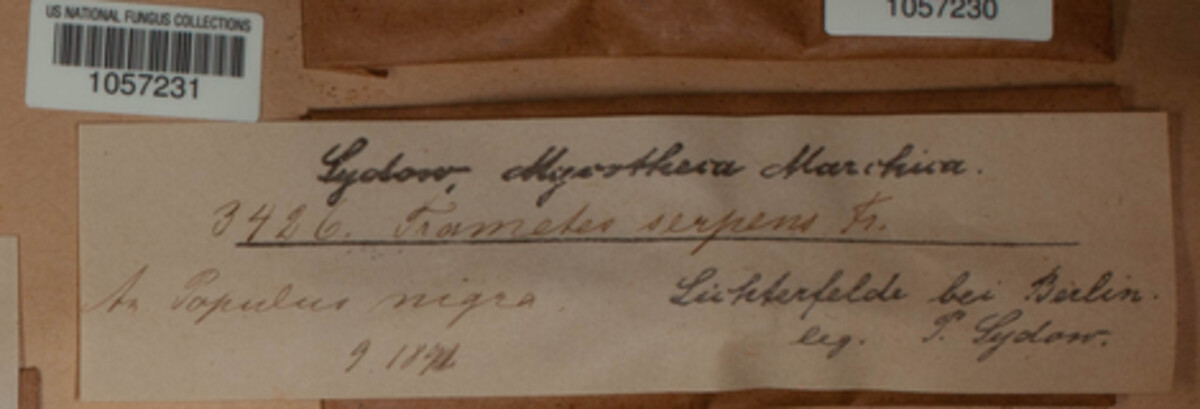 US NATIONAL FUNGUS COLLECTIONS
1057231
1057230
Sydow, Mycotheca Marchica.
3426. Trametes serpens Fr.
An Populus nigra.
Lichterfelde bei Berlin.
9. 
leg. P. Sydow.